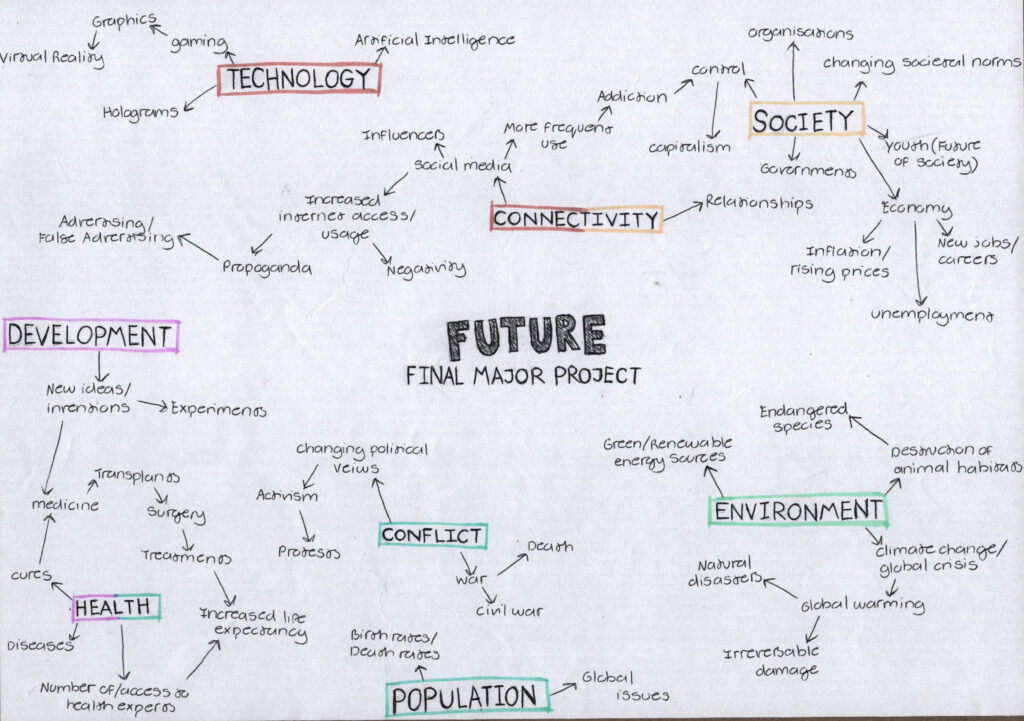 Graphics
Virtual Reality
gaming
TECHNOLOGY
Artificial Intelligence
Holograms
organisations
control
changing societal norms
SOCIETY
Addiction
capitalism
Governments
Youth (Future
of society)
Economy
Inflation/
rising prices
New jobs/
careers
unemployment
Influencers
social media
More frequent
use
CONNECTIVITY
Relationships
Increased
internet access/
usage
Advertising/
False Advertising
Propaganda
Negativity
FUTURE
FINAL MAJOR PROJECT
DEVELOPMENT
New ideas/
inventions
Experiments
medicine
Transplants
Surgery
Treatments
cures
HEALTH
Diseases
Number of/access to
health experts
Increased life
expectancy
changing political
veiws
Activism
Protests
CONFLICT
war
Death
civil war
Birth rates/
Death rates
POPULATION
Global
issues
Green/Renewable
energy sources
Endangered
species
Destruction of
animal habitats
ENVIRONMENT
climate change/
global crisis
Natural
disasters
Global warming
Irreversable
damage